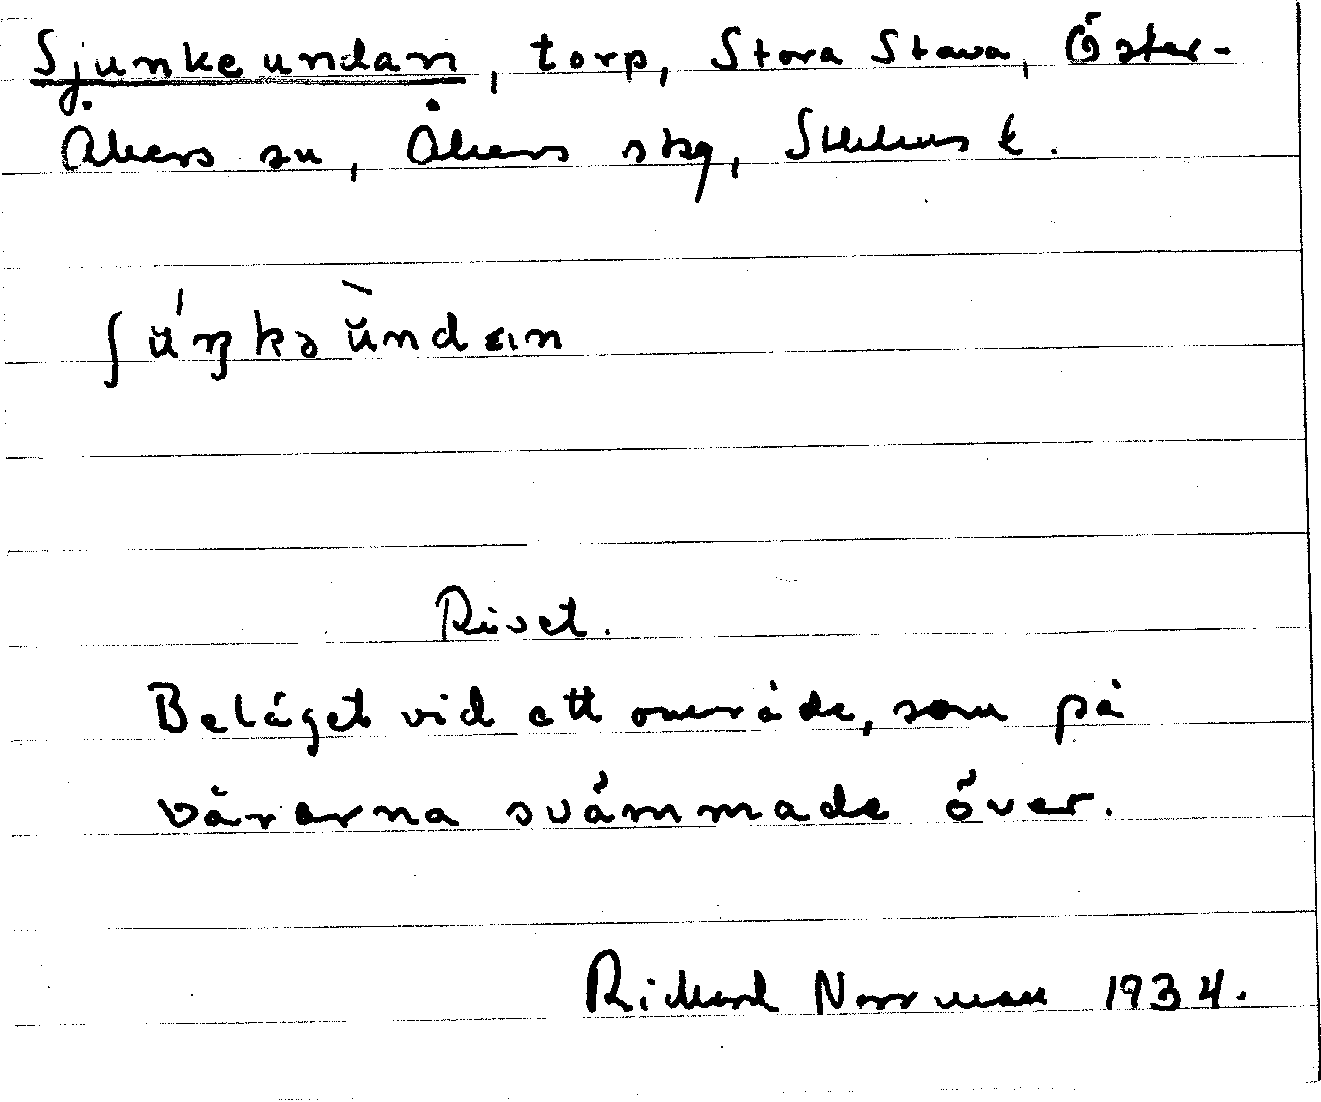 Sjunkeundan, torp, Stora Stava, Öster-
Åkers sn, Åkers skg, Sthlms l.
ʃŭ́ŋkə ŭ̀ndan
Rivet.
Beläget vid ett område, som på
vårarna svämmade över.
Richard Norrman 1934.